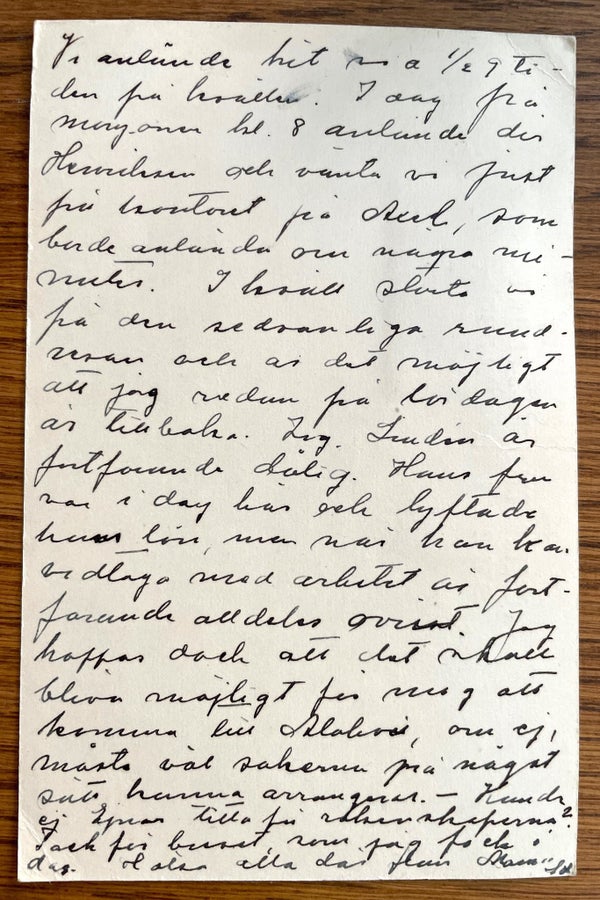 Vi anlände hit vid 1/2 9 ti-
den på kvällen. I dag på
morgonen kl. 8 anlände dir
Henriksen och vänta vi just
på kontoret på Axel, som
borde anlända om några mi-
nuter. I kväll starta vi
på den sedvanliga rund-
resan och är det möjligt
att jag redan på lördagen
är tillbaka. Ing. Lindén är
fortfarande dålig. Hans fru
var i dag här och lyftade
hans lön, men när han kan
vidtaga med arbetet är fort-
farande alldeles ovisst. Jag
hoppas dock att det skall
bliva möjligt för mig att
komma till om ej,
måste väl sakerna på något
sätt kunna arrangeras. — Kunde
ej Ejnar titta på räkenskaperna?
Tack för brevet, som jag fick i
dag. Hälsa alla där